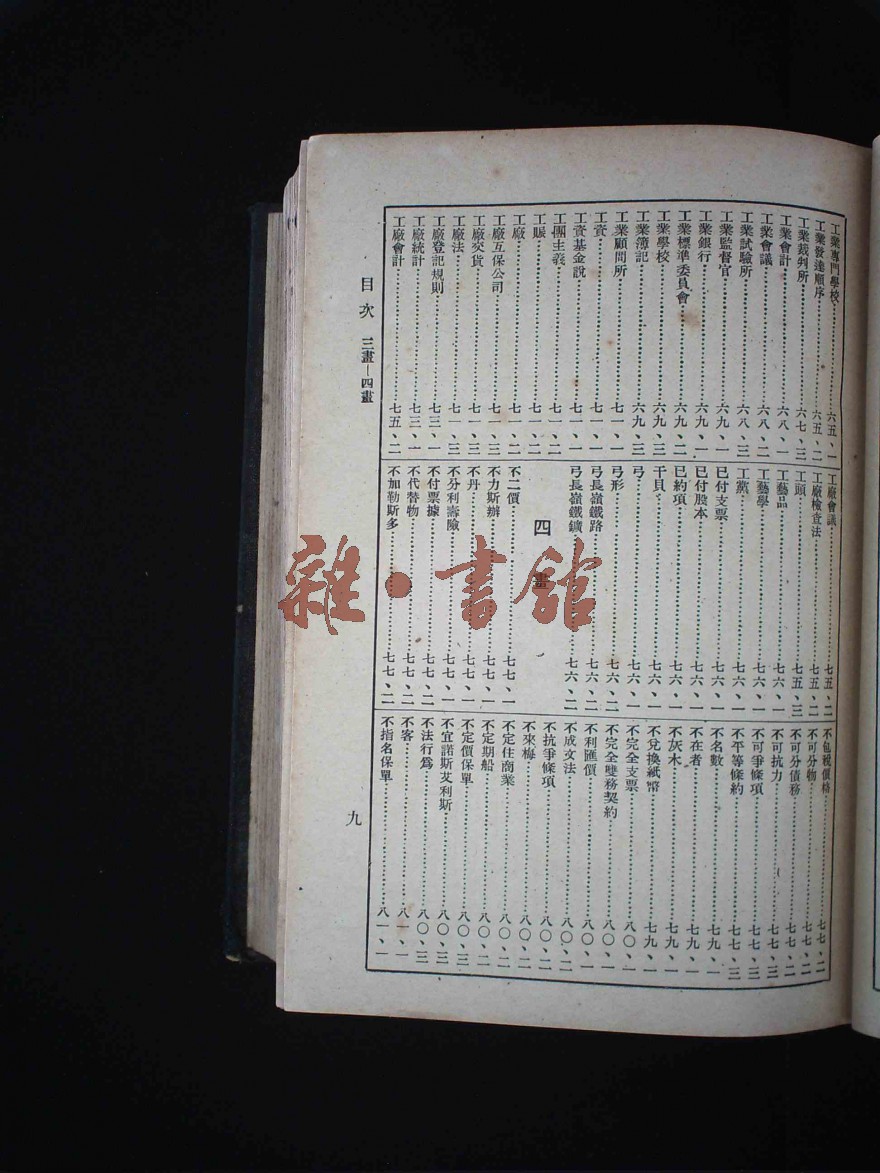 工業專門學校……六五、一
工業發達順序……六五、二
工業裁判所……六七、三
工業會計……六八、一
工業會議……六八、二
工業試驗所……六八、三
工業監督官……六九、一
工業銀行……六九、一
工業標準委員會……六九、二
工業學校……六九、三
工業簿記……六九、三
工業顧問所……七一、一
工資……七一、一
工資基金說……七一、一
工團主義……七一、二
工賑……七一、二
工廠……七一、二
工廠互保公司……七一、三
工廠交貨……七一、三
工廠法……七一、三
工廠登記規則……七三、一
工廠統計……七三、一
工廠會計……七五、二
工廠會議……七五、二
工廠檢查法……七五、二
工頭……七五、三
工藝品……七六、一
工藝學……七六、一
工黨……七六、一
已付支票……七六、一
已付股本……七六、一
已約項……七六、一
干貝……七六、一
弓……七六、一
弓形……七六、二
弓長嶺鐵路……七六、二
弓長嶺鐵鑛……七六、二
四畫
不二價……七七、一
不力斯辦……七七、一
不丹……七七、一
不分利壽險……七七、一
不付票據……七七、二
不代替物……七七、二
不加勒斯多……七七、二
不包稅價格……七七、二
不可分物……七七、二
不可分債務……七七、二
不可抗力……七七、三
不可爭條項……七七、三
不平等條約……七七、三
不名數……七九、一
不在者……七九、一
不灰木……七九、一
不兌換紙幣……七九、一
不完全支票……八〇、一
不完全雙務契約……八〇、一
不利匯價……八〇、一
不成文法……八〇、二
不抗爭條項……八〇、二
不來梅……八〇、二
不定住商業……八〇、二
不定期船……八〇、二
不定價保單……八〇、三
不宜諾斯艾利斯……八〇、三
不法行爲……八〇、三
不客……八一、一
不指名保單……八一、一
目次 三畫—四畫
九
雜·書館